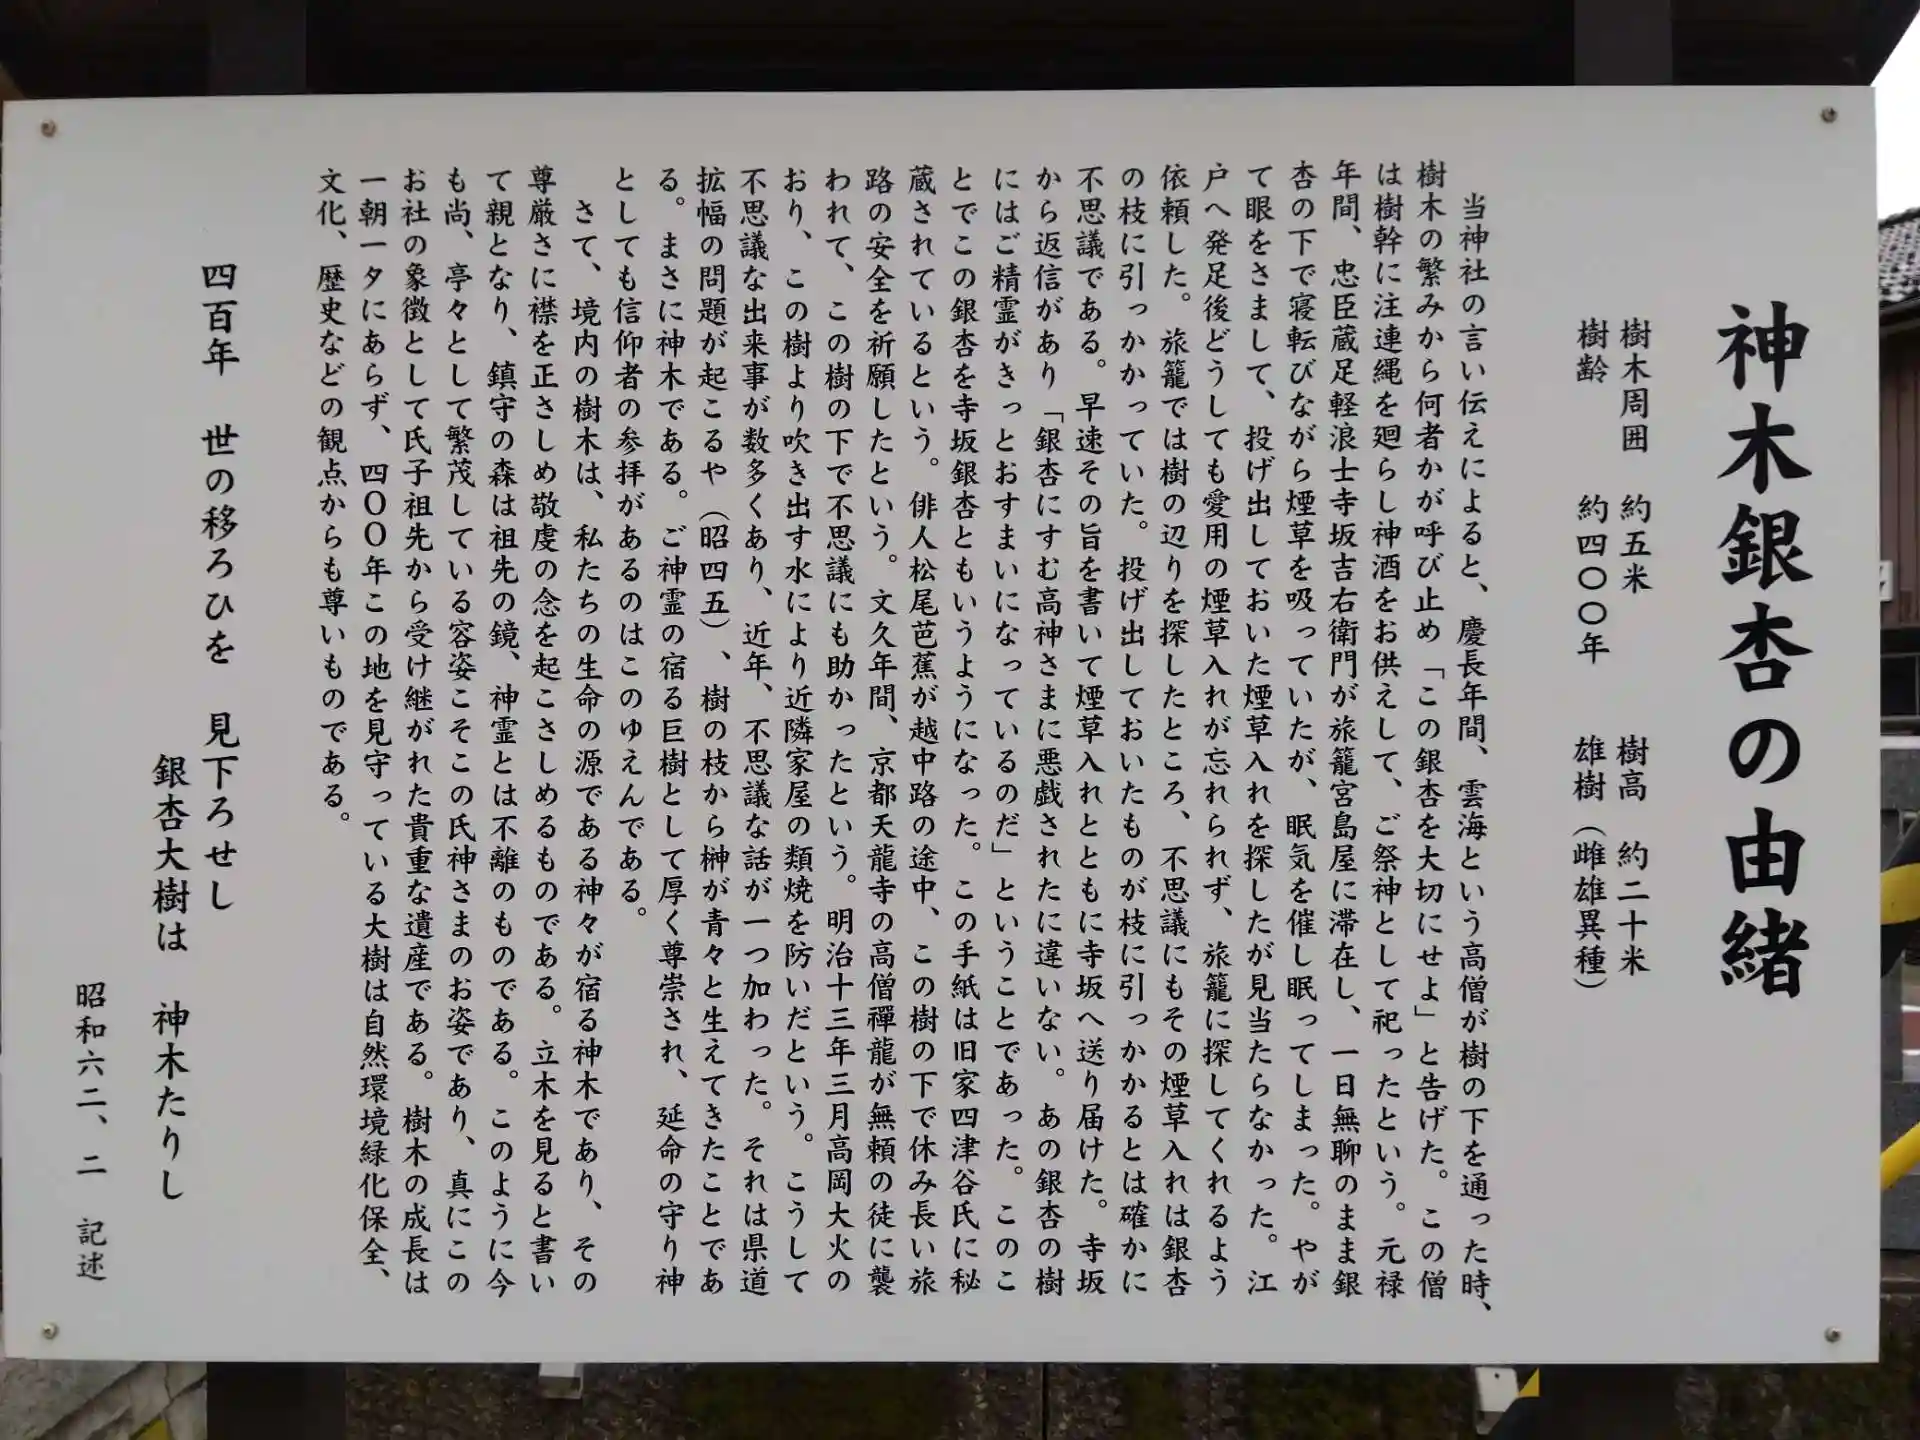 神木銀杏の由緒
樹木周囲 約五米 樹高 約二十米
樹齢 約四〇〇年 雄樹（雌雄異種）
当神社の言い伝えによると、慶長年間、雲海という高僧が樹の下を通った時、
樹木の繁みから何者かが呼び止め「この銀杏を大切にせよ」と告げた。この僧
は樹幹に注連縄を廻らし神酒をお供えして、ご祭神として祀ったという。元禄
年間、忠臣蔵足軽浪士寺坂吉右衛門が旅籠宮島屋に滞在し、一日無聊のまま銀
杏の下で寝転びながら煙草を吸っていたが、眠気を催し眠ってしまった。やが
て眼をさまして、投げ出しておいた煙草入れを探したが見当たらなかった。江
戸へ発足後どうしても愛用の煙草入れが忘れられず、旅籠に探してくれるよう
依頼した。旅籠では樹の辺りを探したところ、不思議にもその煙草入れは銀杏
の枝に引っかかっていた。投げ出しておいたものが枝に引っかかるとは確かに
不思議である。早速その旨を書いて煙草入れとともに寺坂へ送り届けた。寺坂
から返信があり「銀杏にすむ高神さまに悪戯されたに違いない。あの銀杏の樹
にはご精霊がきっとおすまいになっているのだ」ということであった。このこ
とでこの銀杏を寺坂銀杏ともいうようになった。この手紙は旧家四津谷氏に秘
蔵されているという。俳人松尾芭蕉が越中路の途中、この樹の下で休み長い旅
路の安全を祈願したという。文久年間、京都天龍寺の高僧禪龍が無頼の徒に襲
われて、この樹の下で不思議にも助かったという。明治十三年三月高岡大火の
おり、この樹より吹き出す水により近隣家屋の類焼を防いだという。こうして
不思議な出来事が数多くあり、近年、不思議な話が一つ加わった。それは県道
拡幅の問題が起こるや（昭四五）、樹の枝から榊が青々と生えてきたことであ
る。まさに神木である。ご神霊の宿る巨樹として厚く尊崇され、延命の守り神
としても信仰者の参拝があるのはこのゆえんである。
さて、境内の樹木は、私たちの生命の源である神々が宿る神木であり、その
尊厳さに襟を正さしめ敬虔の念を起こさしめるものである。立木を見ると書い
て親となり、鎮守の森は祖先の鏡、神霊とは不離のものである。このように今
も尚、亭々として繁茂している容姿こそこの氏神さまのお姿であり、真にこの
お社の象徴として氏子祖先から受け継がれた貴重な遺産である。樹木の成長は
一朝一夕にあらず、四〇〇年この地を見守っている大樹は自然環境緑化保全、
文化、歴史などの観点からも尊いものである。
四百年 世の移ろひを 見下ろせし
銀杏大樹は 神木たりし
昭和六二、二 記述